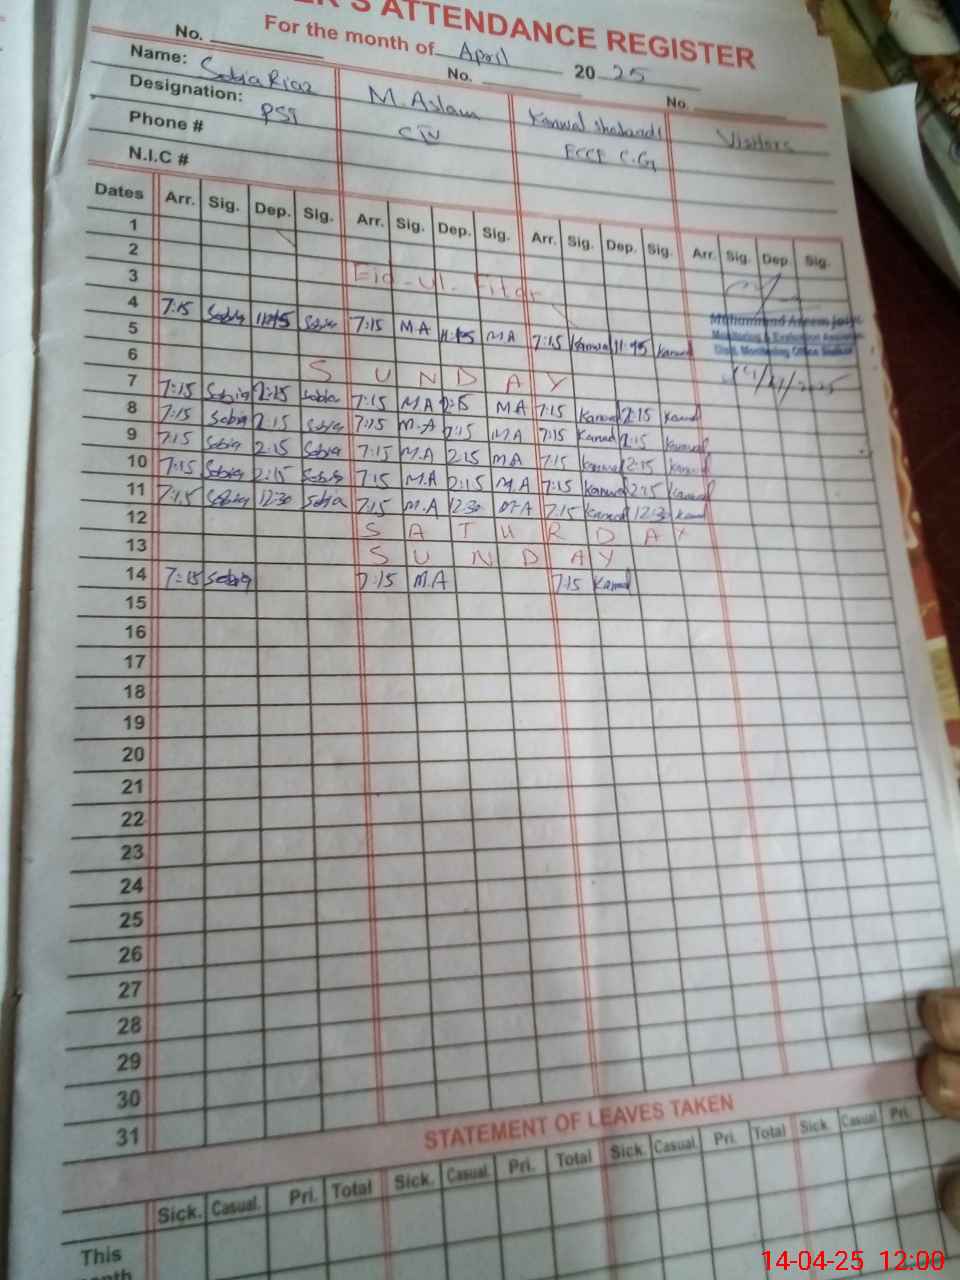 ER'S ATTENDANCE REGISTER
For the month of April 2025
No. No. No.
Name: Sabia Riaz M. Aslam Kanwal Visitors
Designation: PST
Phone #
N.I.C #
Dates Arr. Sig. Dep. Sig. Arr. Sig. Dep. Sig. Arr. Sig. Dep. Sig. Arr. Sig. Dep. Sig.
1
2
3 Eid-ul-Fitar
4 7:15 Sabia 11:45 Sabia 7:15 M.A 11:45 M.A 7:15 Kanwal 11:45 Kanwal
5
6 SUNDAY
7 7:15 Sabia 2:15 Sabia 7:15 M.A 2:15 M.A 7:15 Kanwal 2:15 Kanwal
8 7:15 Sabia 2:15 Sabia 7:15 M.A 2:15 M.A 7:15 Kanwal 2:15 Kanwal
9 7:15 Sabia 2:15 Sabia 7:15 M.A 2:15 M.A 7:15 Kanwal 2:15 Kanwal
10 7:15 Sabia 2:15 Sabia 7:15 M.A 2:15 M.A 7:15 Kanwal 2:15 Kanwal
11 7:15 Sabia 12:30 Sabia 7:15 M.A 12:30 M.A 7:15 Kanwal 12:30 Kanwal
12 SATURDAY
13 SUNDAY
14 7:15 Sabia 7:15 M.A 7:15 Kanwal
15
16
17
18
19
20
21
22
23
24
25
26
27
28
29
30
31
STATEMENT OF LEAVES TAKEN
Sick. Casual. Pri. Total Sick. Casual. Pri. Total Sick. Casual. Pri. Total Sick. Casual. Pri.
This
14-04-25 12:00